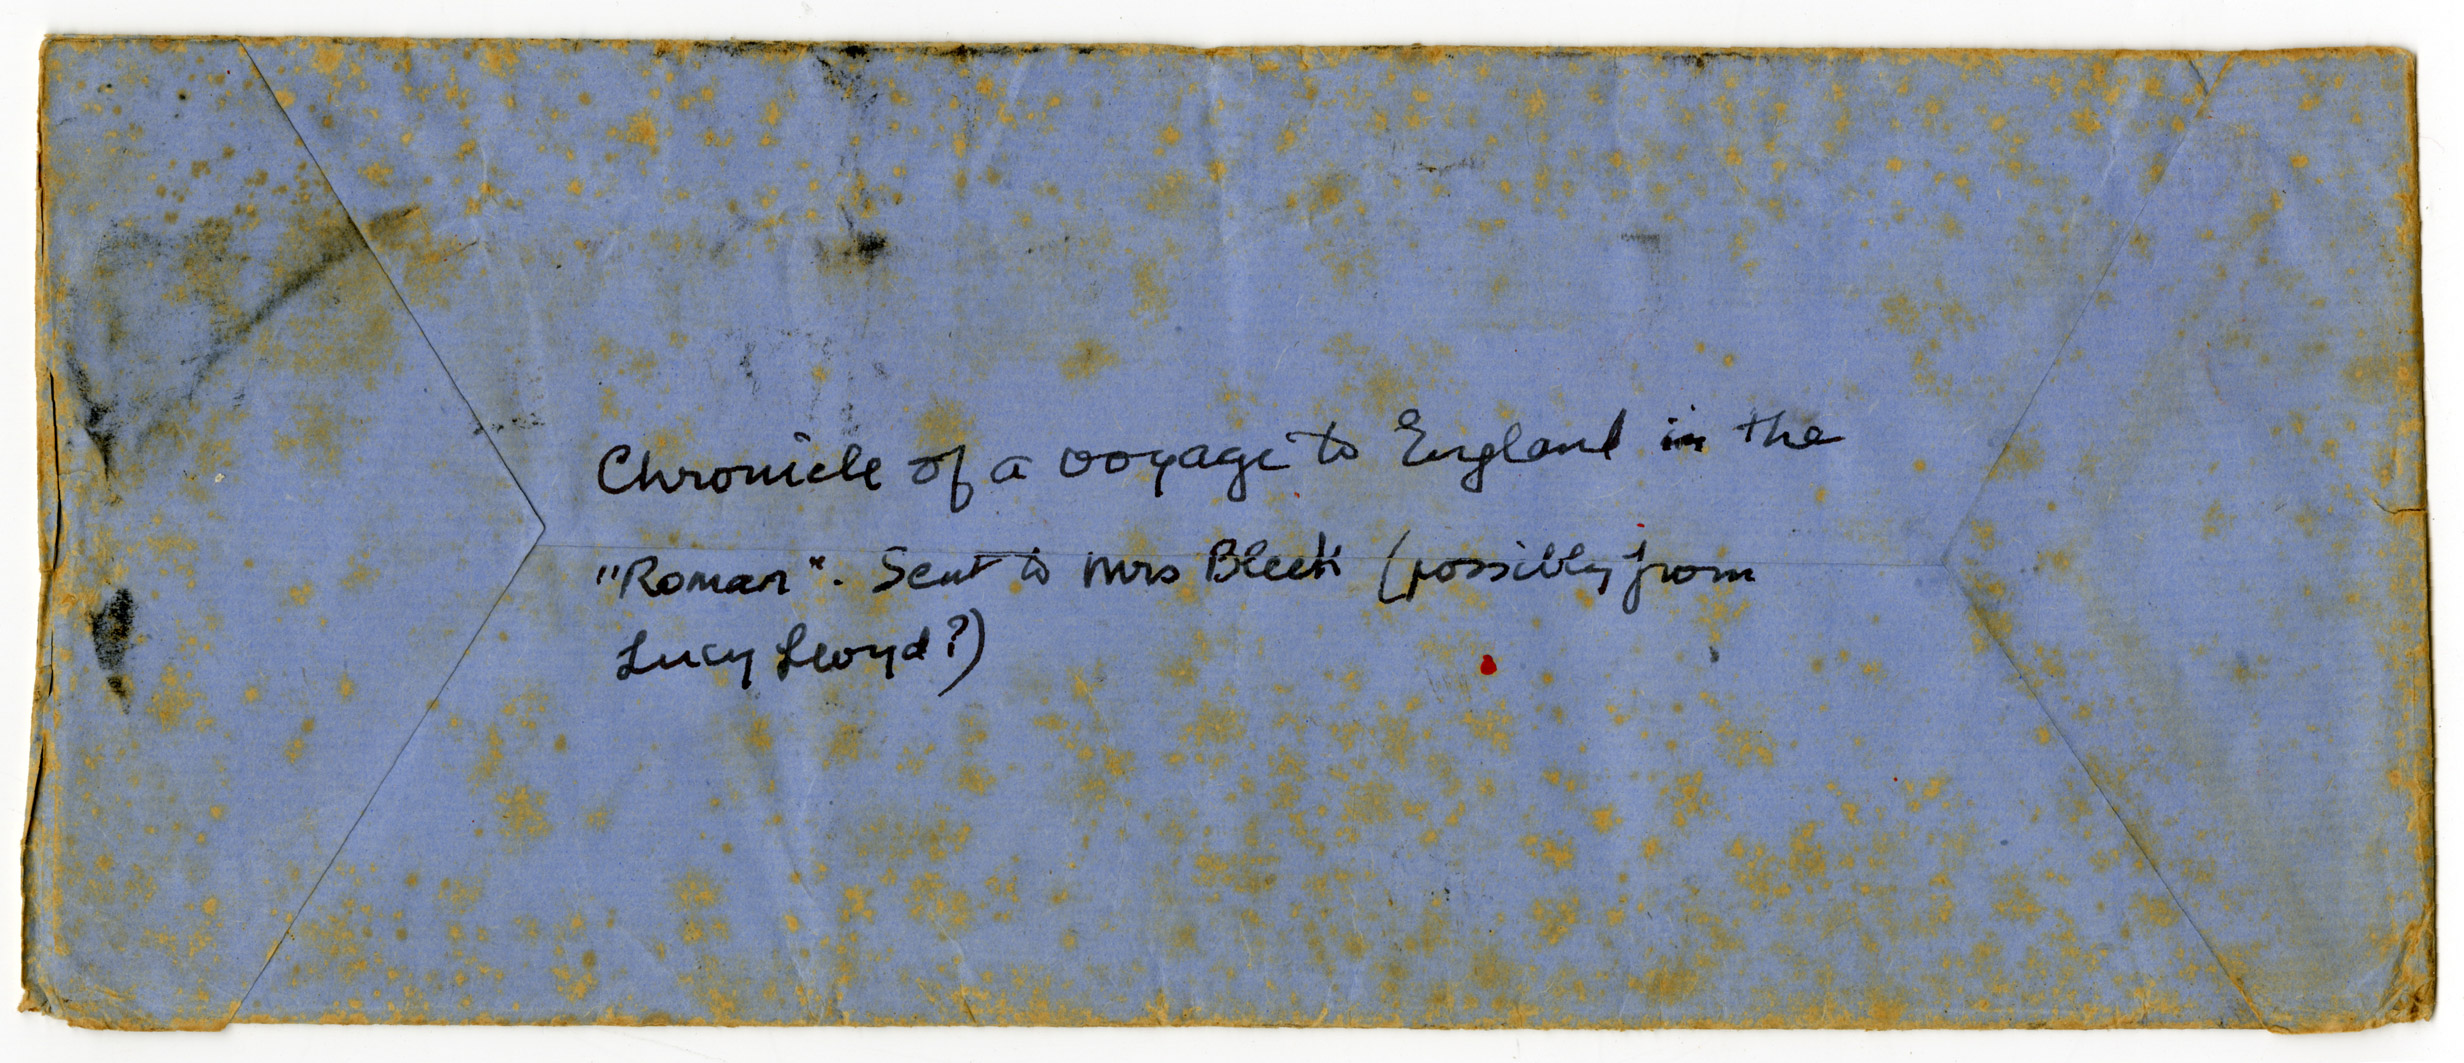 Chronicle of a voyage to England in the
"Roman". Sent to Mrs Bleek (possibly from
Lucy Lloyd?)